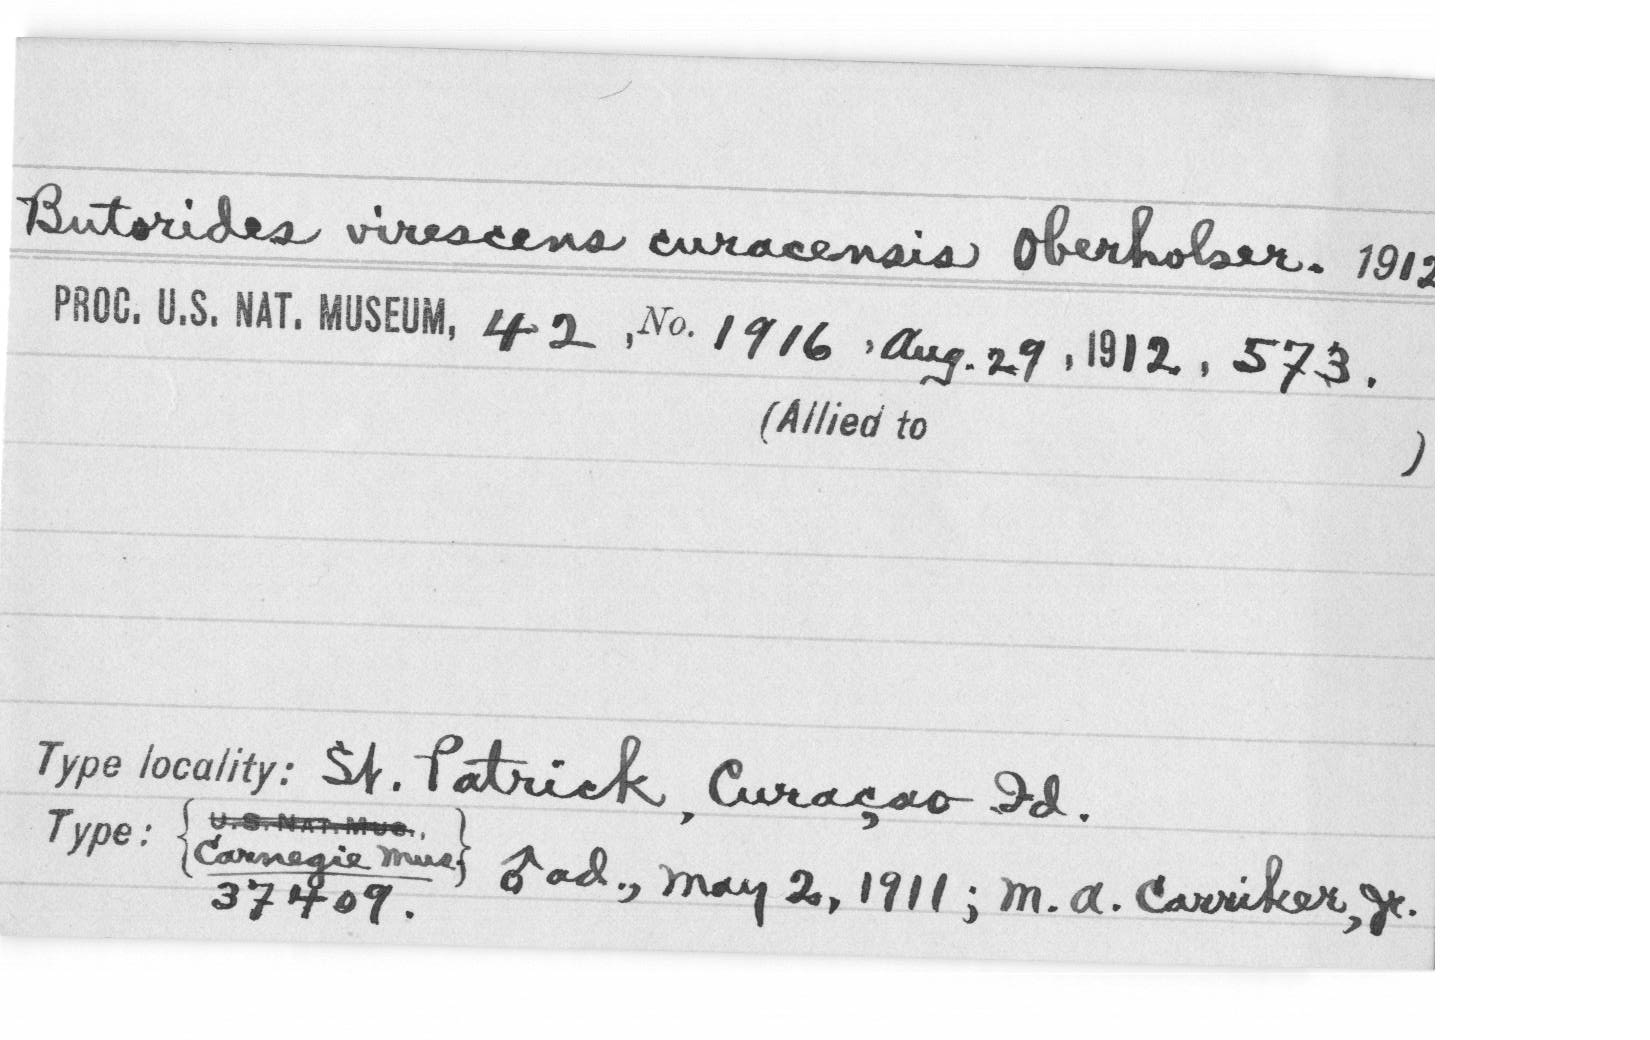 Butorides virescens curacensis Oberholser. 1912
PROC. U.S. NAT. MUSEUM, 42, No. 1916, Aug. 29, 1912, 573.
(Allied to )
Type locality: St. Patrick, Curaçao Id.
Type: { U.S. NAT. MUS., Carnegie Mus. } ♂ ad., May 2, 1911; M. A. Carriker, Jr.
37409.